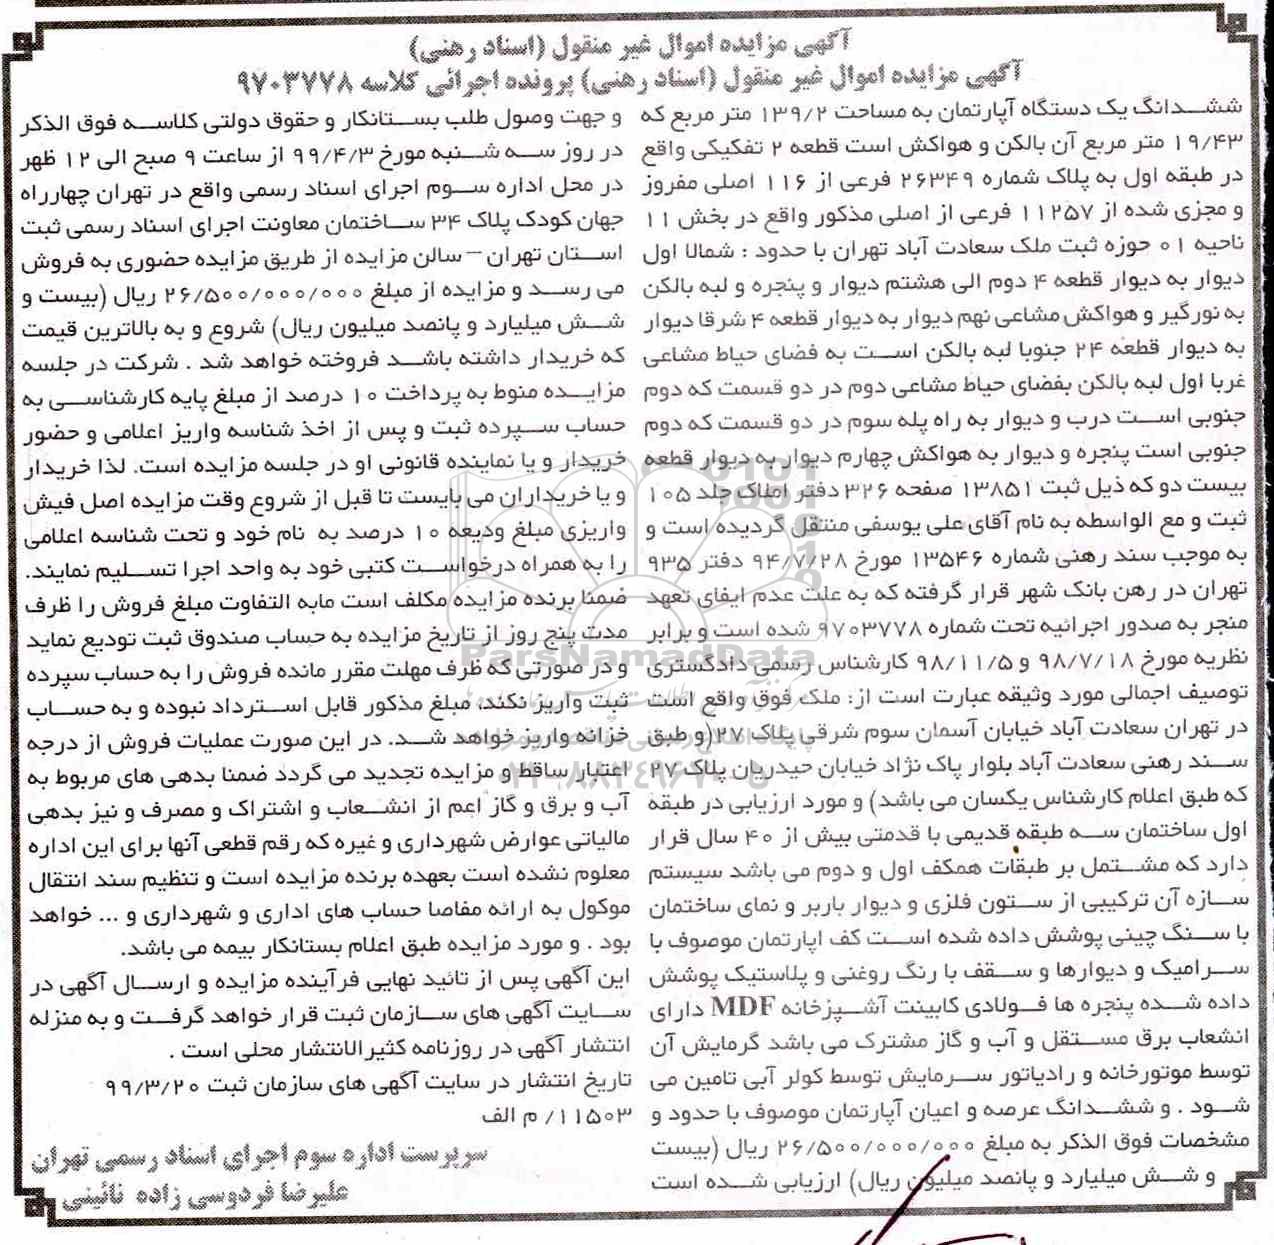 آگهی مزایده اموال غیر منقول (اسناد رهنی)
آگهی مزایده اموال غیر منقول (اسناد رهنی) پرونده اجرائی کلاسه ۹۷۰۳۷۷۸
ششدانگ یک دستگاه آپارتمان به مساحت ۱۳۹/۲ متر مربع که
۱۹/۴۳ متر مربع آن بالکن و هواکش است قطعه ۲ تفکیکی واقع
در طبقه اول به پلاک شماره ۲۶۳۴۹ فرعی از ۱۱۶ اصلی مفروز
و مجزی شده از ۱۱۲۵۷ فرعی از اصلی مذکور واقع در بخش ۱۱
ناحیه ۰۱ حوزه ثبت ملک سعادت آباد تهران با حدود : شمالا اول
دیوار به دیوار قطعه ۴ دوم الی هشتم دیوار و پنجره و لبه بالکن
به نورگیر و هواکش مشاعی نهم دیوار به دیوار قطعه ۴ شرقا دیوار
به دیوار قطعه ۲۴ جنوبا لبه بالکن است به فضای حیاط مشاعی
غربا اول لبه بالکن بفضای حیاط مشاعی دوم در دو قسمت که دوم
جنوبی است درب و دیوار به راه پله سوم در دو قسمت که دوم
جنوبی است پنجره و دیوار به هواکش چهارم دیوار به دیوار قطعه
بیست دو که ذیل ثبت ۱۳۸۵۱ صفحه ۳۲۶ دفتر املاک جلد ۱۰۵
ثبت و مع الواسطه به نام آقای علی یوسفی منتقل گردیده است و
به موجب سند رهنی شماره ۱۳۵۴۶ مورخ ۹۴/۷/۲۸ دفتر ۹۳۵
تهران در رهن بانک شهر قرار گرفته که به علت عدم ایفای تعهد
منجر به صدور اجرائیه تحت شماره ۹۷۰۳۷۷۸ شده است و برابر
نظریه مورخ ۹۸/۷/۱۸ و ۹۸/۱۱/۵ کارشناس رسمی دادگستری
توصیف اجمالی مورد وثیقه عبارت است از: ملک فوق واقع است
در تهران سعادت آباد خیابان آسمان سوم شرقی پلاک ۲۷(و طبق
سند رهنی سعادت آباد بلوار پاک نژاد خیابان حیدریان پلاک ۲۷
که طبق اعلام کارشناس یکسان می باشد) و مورد ارزیابی در طبقه
اول ساختمان سه طبقه قدیمی با قدمتی بیش از ۴۰ سال قرار
دارد که مشتمل بر طبقات همکف اول و دوم می باشد سیستم
سازه آن ترکیبی از ستون فلزی و دیوار باربر و نمای ساختمان
با سنگ چینی پوشش داده شده است کف اپارتمان موصوف با
سرامیک و دیوارها و سقف با رنگ روغنی و پلاستیک پوشش
داده شده پنجره ها فولادی کابینت آشپزخانه MDF دارای
انشعاب برق مستقل و آب و گاز مشترک می باشد گرمایش آن
توسط موتورخانه و رادیاتور سرمایش توسط کولر آبی تامین می
شود . و ششدانگ عرصه و اعیان آپارتمان موصوف با حدود و
مشخصات فوق الذکر به مبلغ ۲۶/۵۰۰/۰۰۰/۰۰۰ ریال (بیست
و شش میلیارد و پانصد میلیون ریال) ارزیابی شده است
و جهت وصول طلب بستانکار و حقوق دولتی کلاسه فوق الذکر
در روز سه شنبه مورخ ۹۹/۴/۳ از ساعت ۹ صبح الی ۱۲ ظهر
در محل اداره سوم اجرای اسناد رسمی واقع در تهران چهارراه
جهان کودک پلاک ۳۴ ساختمان معاونت اجرای اسناد رسمی ثبت
استان تهران – سالن مزایده از طریق مزایده حضوری به فروش
می رسد و مزایده از مبلغ ۲۶/۵۰۰/۰۰۰/۰۰۰ ریال (بیست و
شش میلیارد و پانصد میلیون ریال) شروع و به بالاترین قیمت
که خریدار داشته باشد فروخته خواهد شد . شرکت در جلسه
مزایده منوط به پرداخت ۱۰ درصد از مبلغ پایه کارشناسی به
حساب سپرده ثبت و پس از اخذ شناسه واریز اعلامی و حضور
خریدار و یا نماینده قانونی او در جلسه مزایده است. لذا خریدار
و یا خریداران می بایست تا قبل از شروع وقت مزایده اصل فیش
واریزی مبلغ ودیعه ۱۰ درصد به نام خود و تحت شناسه اعلامی
را به همراه درخواست کتبی خود به واحد اجرا تسلیم نمایند.
ضمنا برنده مزایده مکلف است مابه التفاوت مبلغ فروش را ظرف
مدت پنج روز از تاریخ مزایده به حساب صندوق ثبت تودیع نماید
و در صورتی که ظرف مهلت مقرر مانده فروش را به حساب سپرده
ثبت واریز نکند، مبلغ مذکور قابل استرداد نبوده و به حساب
خزانه واریز خواهد شد. در این صورت عملیات فروش از درجه
اعتبار ساقط و مزایده تجدید می گردد ضمنا بدهی های مربوط به
آب و برق و گاز اعم از انشعاب و اشتراک و مصرف و نیز بدهی
مالیاتی عوارض شهرداری و غیره که رقم قطعی آنها برای این اداره
معلوم نشده است بعهده برنده مزایده است و تنظیم سند انتقال
موکول به ارائه مفاصا حساب های اداری و شهرداری و ... خواهد
بود . و مورد مزایده طبق اعلام بستانکار بیمه می باشد.
این آگهی پس از تائید نهایی فرآینده مزایده و ارسال آگهی در
سایت آگهی های سازمان ثبت قرار خواهد گرفت و به منزله
انتشار آگهی در روزنامه کثیرالانتشار محلی است .
تاریخ انتشار در سایت آگهی های سازمان ثبت ۹۹/۳/۲۰
۱۱۵۰۳/ م الف
سرپرست اداره سوم اجرای اسناد رسمی تهران
علیرضا فردوسی زاده نائینی
ParsNamadData
۰۲۱-۸۸۳۴۹۶۷۰-۵